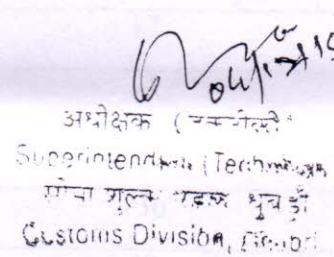 अधीक्षक (तकनीकी)
Superintendent (Technical)
सीमा शुल्क मण्डल धुबड़ी
Customs Division, Dhubri